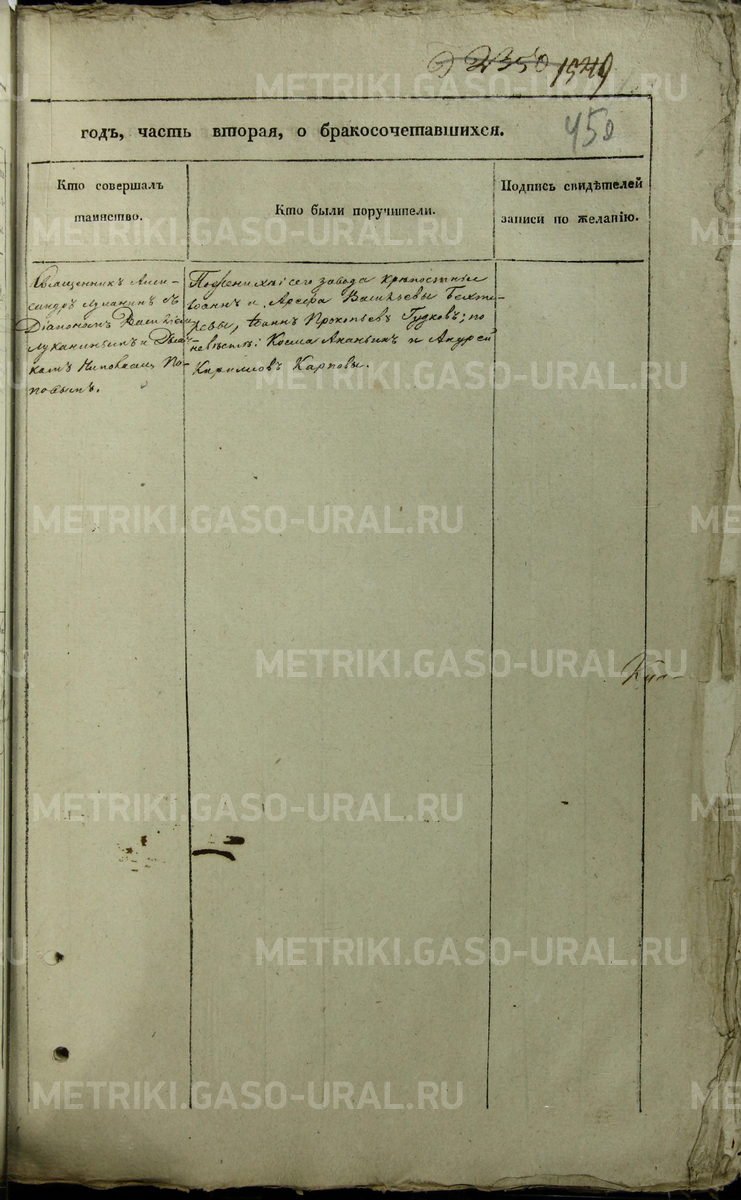 2350 1549
годъ, часть вторая, о бракосочетавшихся.
450
Кто совершалъ
таинство.
Кто были поручители.
Подпись свидѣтелей
записи по желанію.
Священникъ Алек-
сандръ Луканинъ съ
Діакономъ Василіемъ
Луканинымъ и Дьяч-
комъ Поповымъ.
По женихѣ: сего завода крѣпостные
Іоаннъ и Арефа Васильевы Бехте-
ревы, Іоаннъ Прокопьевъ Гудковъ; по
невѣстѣ: Косма Ананьинъ и Андрей
Кирилловъ Карповы.
METRIKI.GASO-URAL.RU